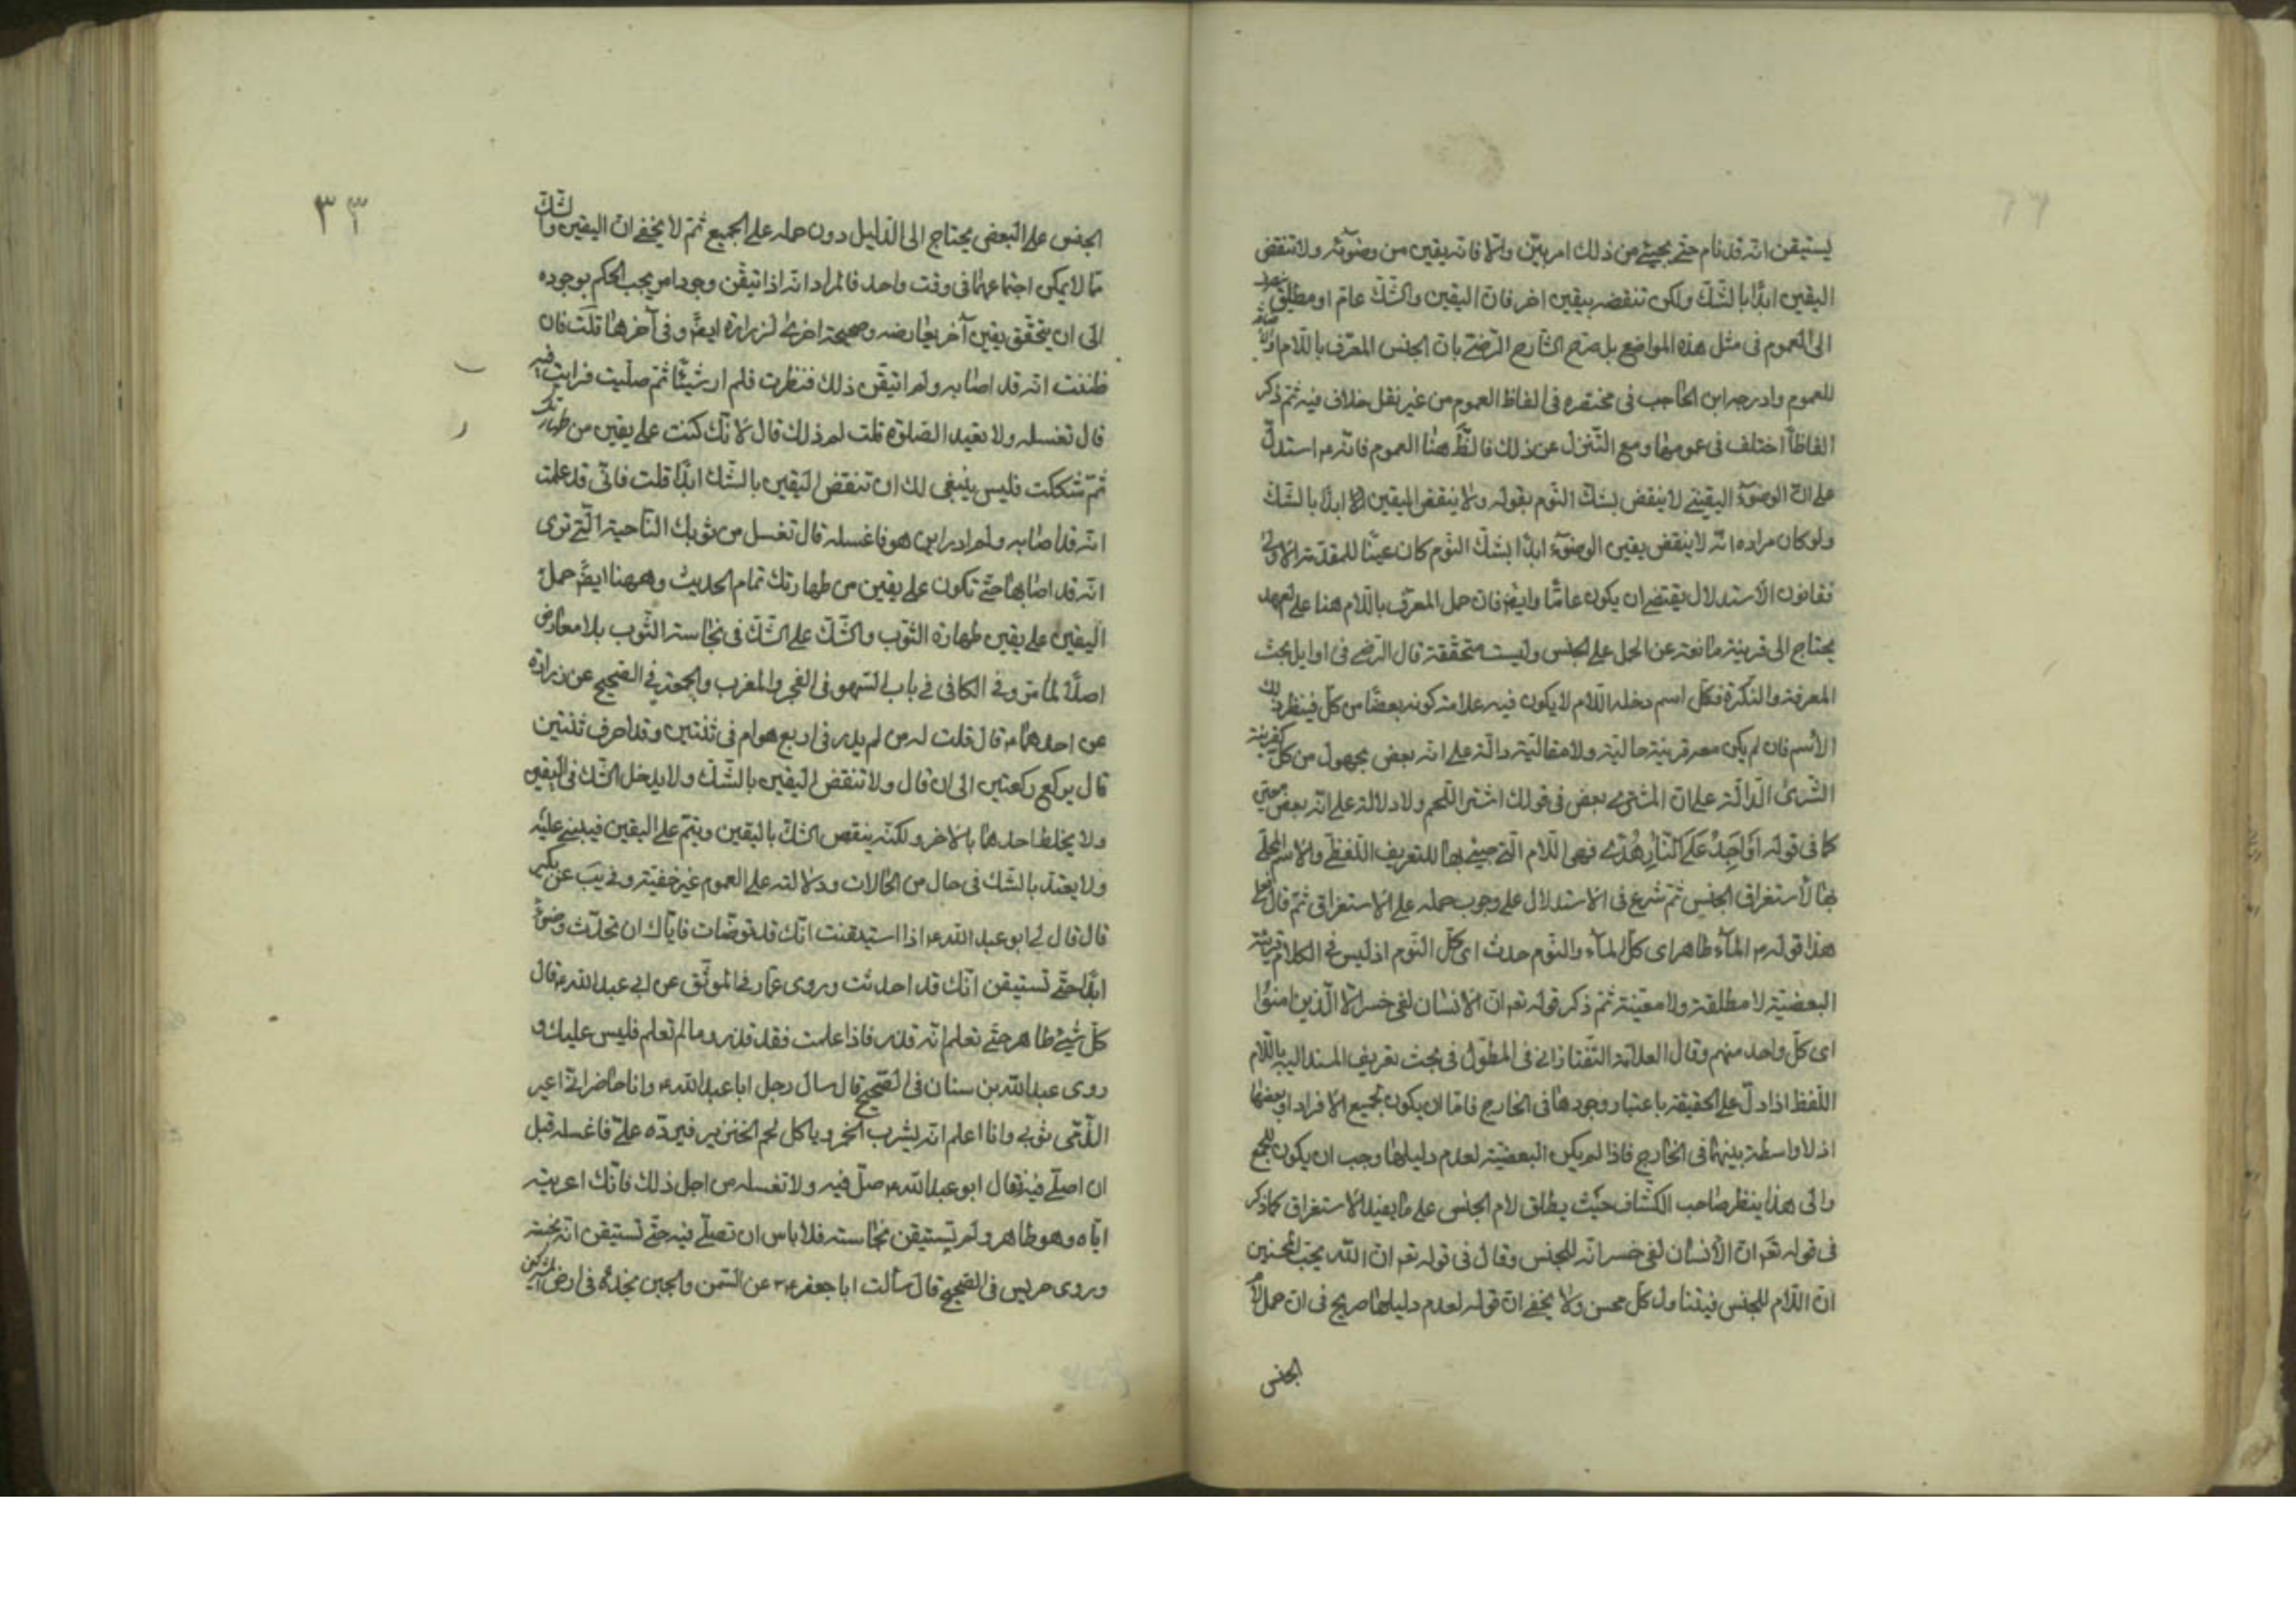 يستيقن انه قد نام حتى يجيئ من ذلك امر بيّن والّا فانه يقين من وضوئه ولا تنقض
اليقين ابدًا بالشّكّ ولكن تنقضه بيقين اخر فان اليقين والشّكّ عامّ او مطلق
الى العموم فى مثل هذه المواضع بل صرّح الشّارح الرّضى بانّ الجنس المعرّف باللّام
للعموم وادرجه ابن الحاجب فى مختصره فى الفاظ العموم من غير نقل خلاف فيه ثمّ ذكر
الفاظًا اختلف فى عمومها ومع التّنزل عن ذلك فالظّ هنا العموم فانه ع استدلّ
على انّ الوضوء اليقينى لا ينقض بشكّ النّوم بقوله ولا ينقض اليقين ابدًا بالشّكّ
ولو كان مراده انّه لا ينقض يقين الوضوء ابدًا بشكّ النّوم كان عينًا للمقدّمة الاولى
فقانون الاستدلال يقتضى ان يكون عامًّا وايضًا فان حمل المعرّف باللّام هنا على العهد
يحتاج الى قرينة مانعة عن الحمل على الجنس وليست متحققة قال الرّضى فى اوايل بحث
المعرفة والنّكرة فكلّ اسم دخله اللّام لا يكون فيه علامة كونه بعضًا من كلّ فينظر ذلك
الاسم فان لم يكن معه قرينة حاليّة ولا مقاليّة دالّة على انّه بعض مجهول من كلّ كقرينة
الشّرى الدّالّة على انّ المشترى بعض فى قولك اشتر اللّحم ولا دلالة على انّه بعض معيّن
كما فى قوله اَوْ اَجِدُ عَلَى النَّارِ هُدًى فهى اللّام الّتى جيئ بها للتعريف اللّفظى والاسم المحلّى
بها لاستغراق الجنس ثمّ شرع فى الاستدلال على وجوب حمله على الاستغراق ثمّ قال فعلى
هذا قوله ع الماء طاهر اى كلّ الماء والنّوم حدث اى كلّ النّوم اذ ليس فى الكلام قرينة
البعضيّة لا مطلقة ولا معيّنة ثمّ ذكر قوله تعه انّ الانسان لفى خسر الّا الّذين امنوا
اى كلّ واحد منهم وقال العلّامة التّفتازانى فى المطوّل فى بحث تعريف المسند اليه باللّام
اللّفظ اذا دلّ على الحقيقة باعتبار وجودها فى الخارج فامّا ان يكون لجميع الافراد او بعضها
اذ لا واسطة بينهما فى الخارج فاذا لم يكن البعضيّة لعدم دليلها وجب ان يكون للجميع
والى هذا ينظر صاحب الكشّاف حيث يطلق لام الجنس على ما يفيد الاستغراق كما ذكر
فى قوله تعه انّ الانسان لفى خسر انّه للجنس وقال فى قوله تعه انّ اللّه يحبّ المحسنين
انّ اللّام للجنس فيتناول كلّ محسن ولا يخفى انّ قوله لعدم دليلها صريح فى ان حمل
الجنس
٣٣
الجنس على البعض يحتاج الى الدّليل دون حمله على الجميع ثمّ لا يخفى ان اليقين والشّكّ
ممّا لا يمكن اجتماعهما فى وقت واحد فالمراد انّه اذا تيقّن وجود امر يجب الحكم بوجوده
الى ان يتحقّق يقين آخر يعارضه وصحيحة اخرى لزرارة ايضًا وفى آخرها قلت فان
ظننت انّه قد اصابه ولم اتيقّن ذلك فنظرت فلم ار شيئًا ثمّ صلّيت فرايت فيه
قال تغسله ولا تعيد الصّلوة قلت لم ذلك قال لانّك كنت على يقين من طهارتك
ثمّ شككت فليس ينبغى لك ان تنقض اليقين بالشّك ابدًا قلت فانّى قد علمت
انّه قد اصابه ولم ادر اين هو فاغسله قال تغسل من ثوبك النّاحية الّتى ترى
انّه قد اصابها حتّى تكون على يقين من طهارتك تمام الحديث وههنا ايضًا حمل
اليقين على يقين طهارة الثّوب والشّكّ على الشّكّ فى نجاسة الثّوب بلا معارض
اصلًا لما مرّ وفى الكافى فى باب السّهو فى الفجر والمغرب والجمعة فى الصّحيح عن زرارة
عن احدهما ع قال قلت له من لم يدر فى اربع هو ام فى ثنتين وقد احرز ثنتين
قال يركع ركعتين الى ان قال ولا تنقض اليقين بالشّكّ ولا يدخل الشّكّ فى اليقين
ولا يخلط احدهما بالاخر ولكنّه ينقض الشّكّ باليقين ويتمّ على اليقين فيبنى عليه
ولا يعتدّ بالشّك فى حال من الحالات ودلالته على العموم غير خفيّة وفى يب عن بكير
قال قال لى ابو عبد اللّه ع اذا استيقنت انّك قد توضّات فايّاك ان تحدّث وضوءً
ابدًا حتّى تستيقن انّك قد احدثت وروى عمّار فى الموثّق عن ابى عبد اللّه ع قال
كلّ شيئ طاهر حتّى تعلم انّه قذر فاذا علمت فقد قذر وما لم تعلم فليس عليك و
روى عبد اللّه بن سنان فى الصّحيح قال سال رجل ابا عبد اللّه ع وانا حاضر انّى اعير
الذّمّى ثوبى وانا اعلم انّه يشرب الخمر وياكل لحم الخنزير فيردّه علىّ فاغسله قبل
ان اصلّى فيه فقال ابو عبد اللّه ع صلّ فيه ولا تغسله من اجل ذلك فانّك اعرته
ايّاه وهو طاهر ولم تستيقن نجاسته فلا باس ان تصلّى فيه حتّى تستيقن انّه نجّسه
وروى ضريس فى الصّحيح قال سألت ابا جعفر ع عن السّمن والجبن نجده فى ارض المشركين